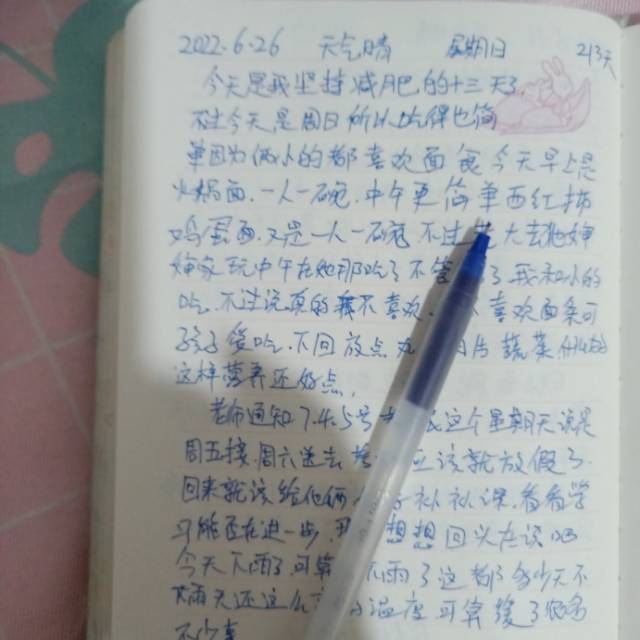 2022.6.26 天气晴 星期日 213天
今天是我坚持减肥的十三天了
不过今天是周日所以吃得也简
单因为俩小的都喜欢面食今天早上是
火锅面.一人一碗.中午更简单西红柿
鸡蛋面.又是一人一碗 不过 大去她婶
婶家玩中午在她那吃了不 了 我和小的
吃.不过说真的我不喜欢. 喜欢面条可
孩子爱吃.下回放点 肉片蔬菜什么的
这样营养还好点,
老师通知7.4.5号 这个星期天说是
周五接.周六送去 应该就放假了.
回来就该给他们俩 补补课.看看学
习能否在进一步. 想想回头在说吧
今天下雨了可算 下雨了这都多少天不
下雨天还这么 温度可算缓了好多
不少